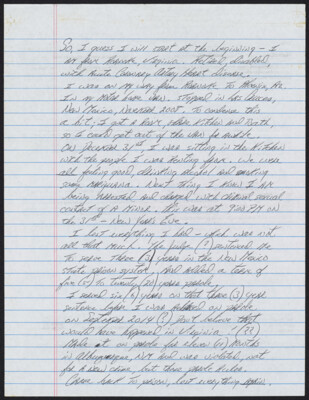 So, I guess I will start at the beginning – I
am from Roanoke, Virginia. Retired, disabled,
with Acute Coronary Artery Heart disease.
I was on my way from Roanoke to
in my motor home when I stopped in Las Cruces,
New Mexico, December 2005. To condense this
a bit, I got a room, with kitchen and Bath,
so I could get out of the van for awhile.
On December 31st I was sitting in the kitchen
with the people I was renting from. We were
all feeling good, drinking alcohol and smoking
some marijuana. Next thing I know I am
being arrested and charged with criminal sexual
contact of a minor. This was at 9:00 PM on
the 31st – New Years Eve.
I lost everything I had – which was not
all that much. The judge (?) sentenced me
to serve three (3) years in the New Mexico
state prison system, and added a term of
five (5) to twenty (20) years parole.
I served six (6) years on that three (3) year
sentence before I was released on parole
in September 2014 (?) don't believe that
would have happened in Virginia (??)
Made it on parole for eleven (11) months
in Albuquerque, NM and was violated, not
for a new crime, but three parole rules.
Came back to prison, lost everything again.